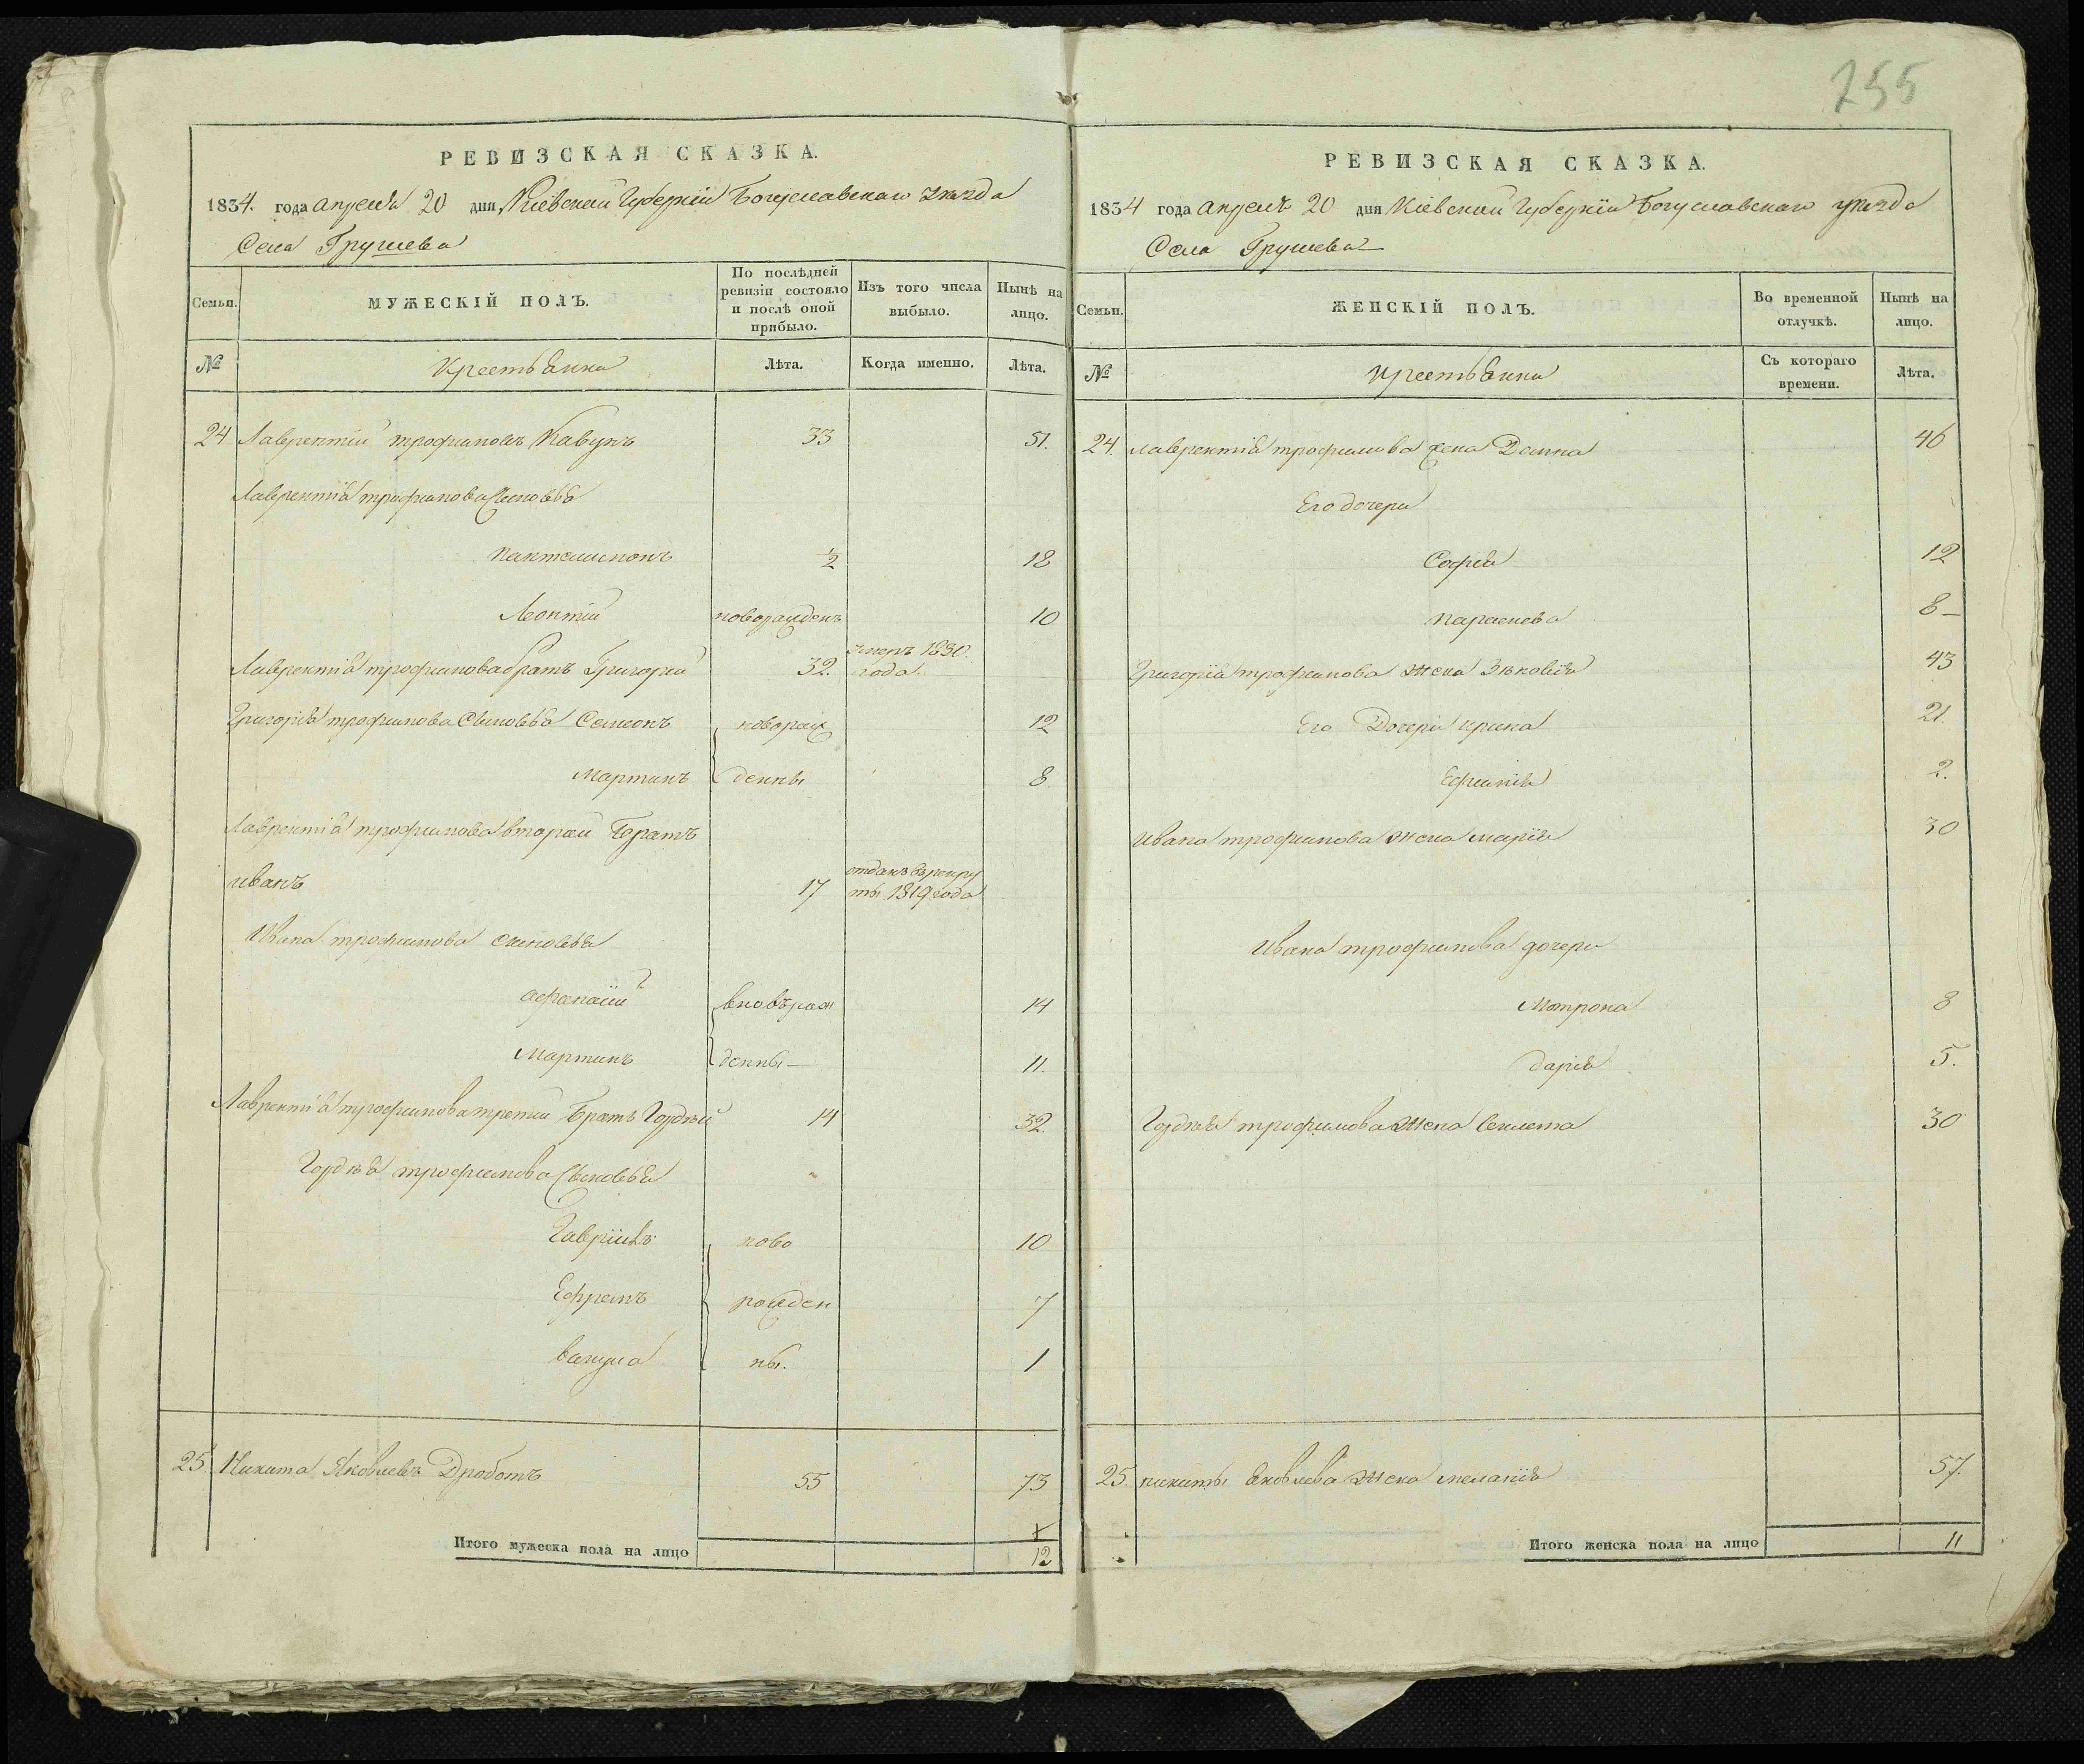 255
РЕВИЗСКАЯ СКАЗКА.
1834. года апреля 20 дня Кіевской Губерніи Богуславскаго уезда
Села Грушева
Семьи.
МУЖЕСКІЙ ПОЛЪ.
По послѣдней ревизіи состояло и послѣ оной прибыло.
Изъ того числа выбыло.
Нынѣ на лицо.
№
Крестьяни
Лѣта.
Когда именно.
Лѣта.
24 Лаврентій трофимовъ Кавунъ 33 51.
Лаврентія трофимова Синовья
Пантелимонъ ½ 18
Леонтій новорожденъ 10
Лаврентія трофимова братъ Григорій 32. умеръ 1830. года.
Григорія трофимова Сыновья Семионъ новорож 12
Мартинъ денны 8.
Лаврентія трофимова вторай Братъ
иванъ 17 отданъ въ рекру ты 1819 года
Ивана трофимова синовья
афанасій вновърож 14
Мартинъ денны — 11.
Лаврентія трофимова третий Братъ Гордѣй 14 32.
Гордѣя трофимова Сыновья
Гавріилъ ново 10
Ефремъ рожден 7
вакула ны. 1
25 Никита Яковлевъ Дроботъ 55 73
Итого мужеска пола на лицо 12
РЕВИЗСКАЯ СКАЗКА.
1834 года апреля 20 дня Кіевской Губерніи Богуславскаго уезда
Села Грушева
Семьи.
ЖЕНСКІЙ ПОЛЪ.
Во временной отлучкѣ.
Нынѣ на лицо.
№
Крестьяни
Съ котораго времени.
Лѣта.
24. лаврентія трофимова жена Домна 46
Его дочери
Софія 12
параскева 8 —
Григорія трофимова жена Зѣновія 43
Его Дочери ирина 21.
Ефимія 2.
Ивана трофимова жена марія 30
Ивана трофимова дочери
Мотрона 8
дарія 5.
Гордѣя трофимова жена Феклета 30
25. никиты яковлева жена меланія 57.
Итого женска пола на лицо 11